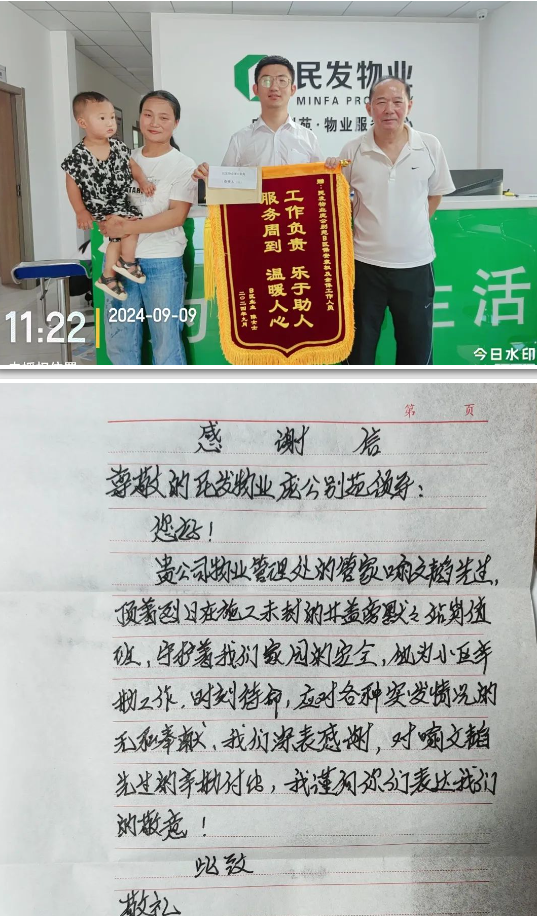 民发物业
MINFA PRO
苑·物业服
工作负责 乐于助人
服务周到 温暖人心
二〇二四年九月
生活
11:22
2024-09-09
今日水印
第 页
感谢信
尊敬的民发物业庞公别苑领导：
您好！
贵公司物业管理处的管家喻文韬先生，
顶着烈日在施工未封的井盖旁默々站岗值
班，守护着我们家园的安全，他为小区辛
勤工作，时刻待命，应对各种突发情况的
无私奉献，我们深表感谢，对喻文韬
先生的辛勤付出，我谨向你们表达我们
的敬意！
此致
敬礼